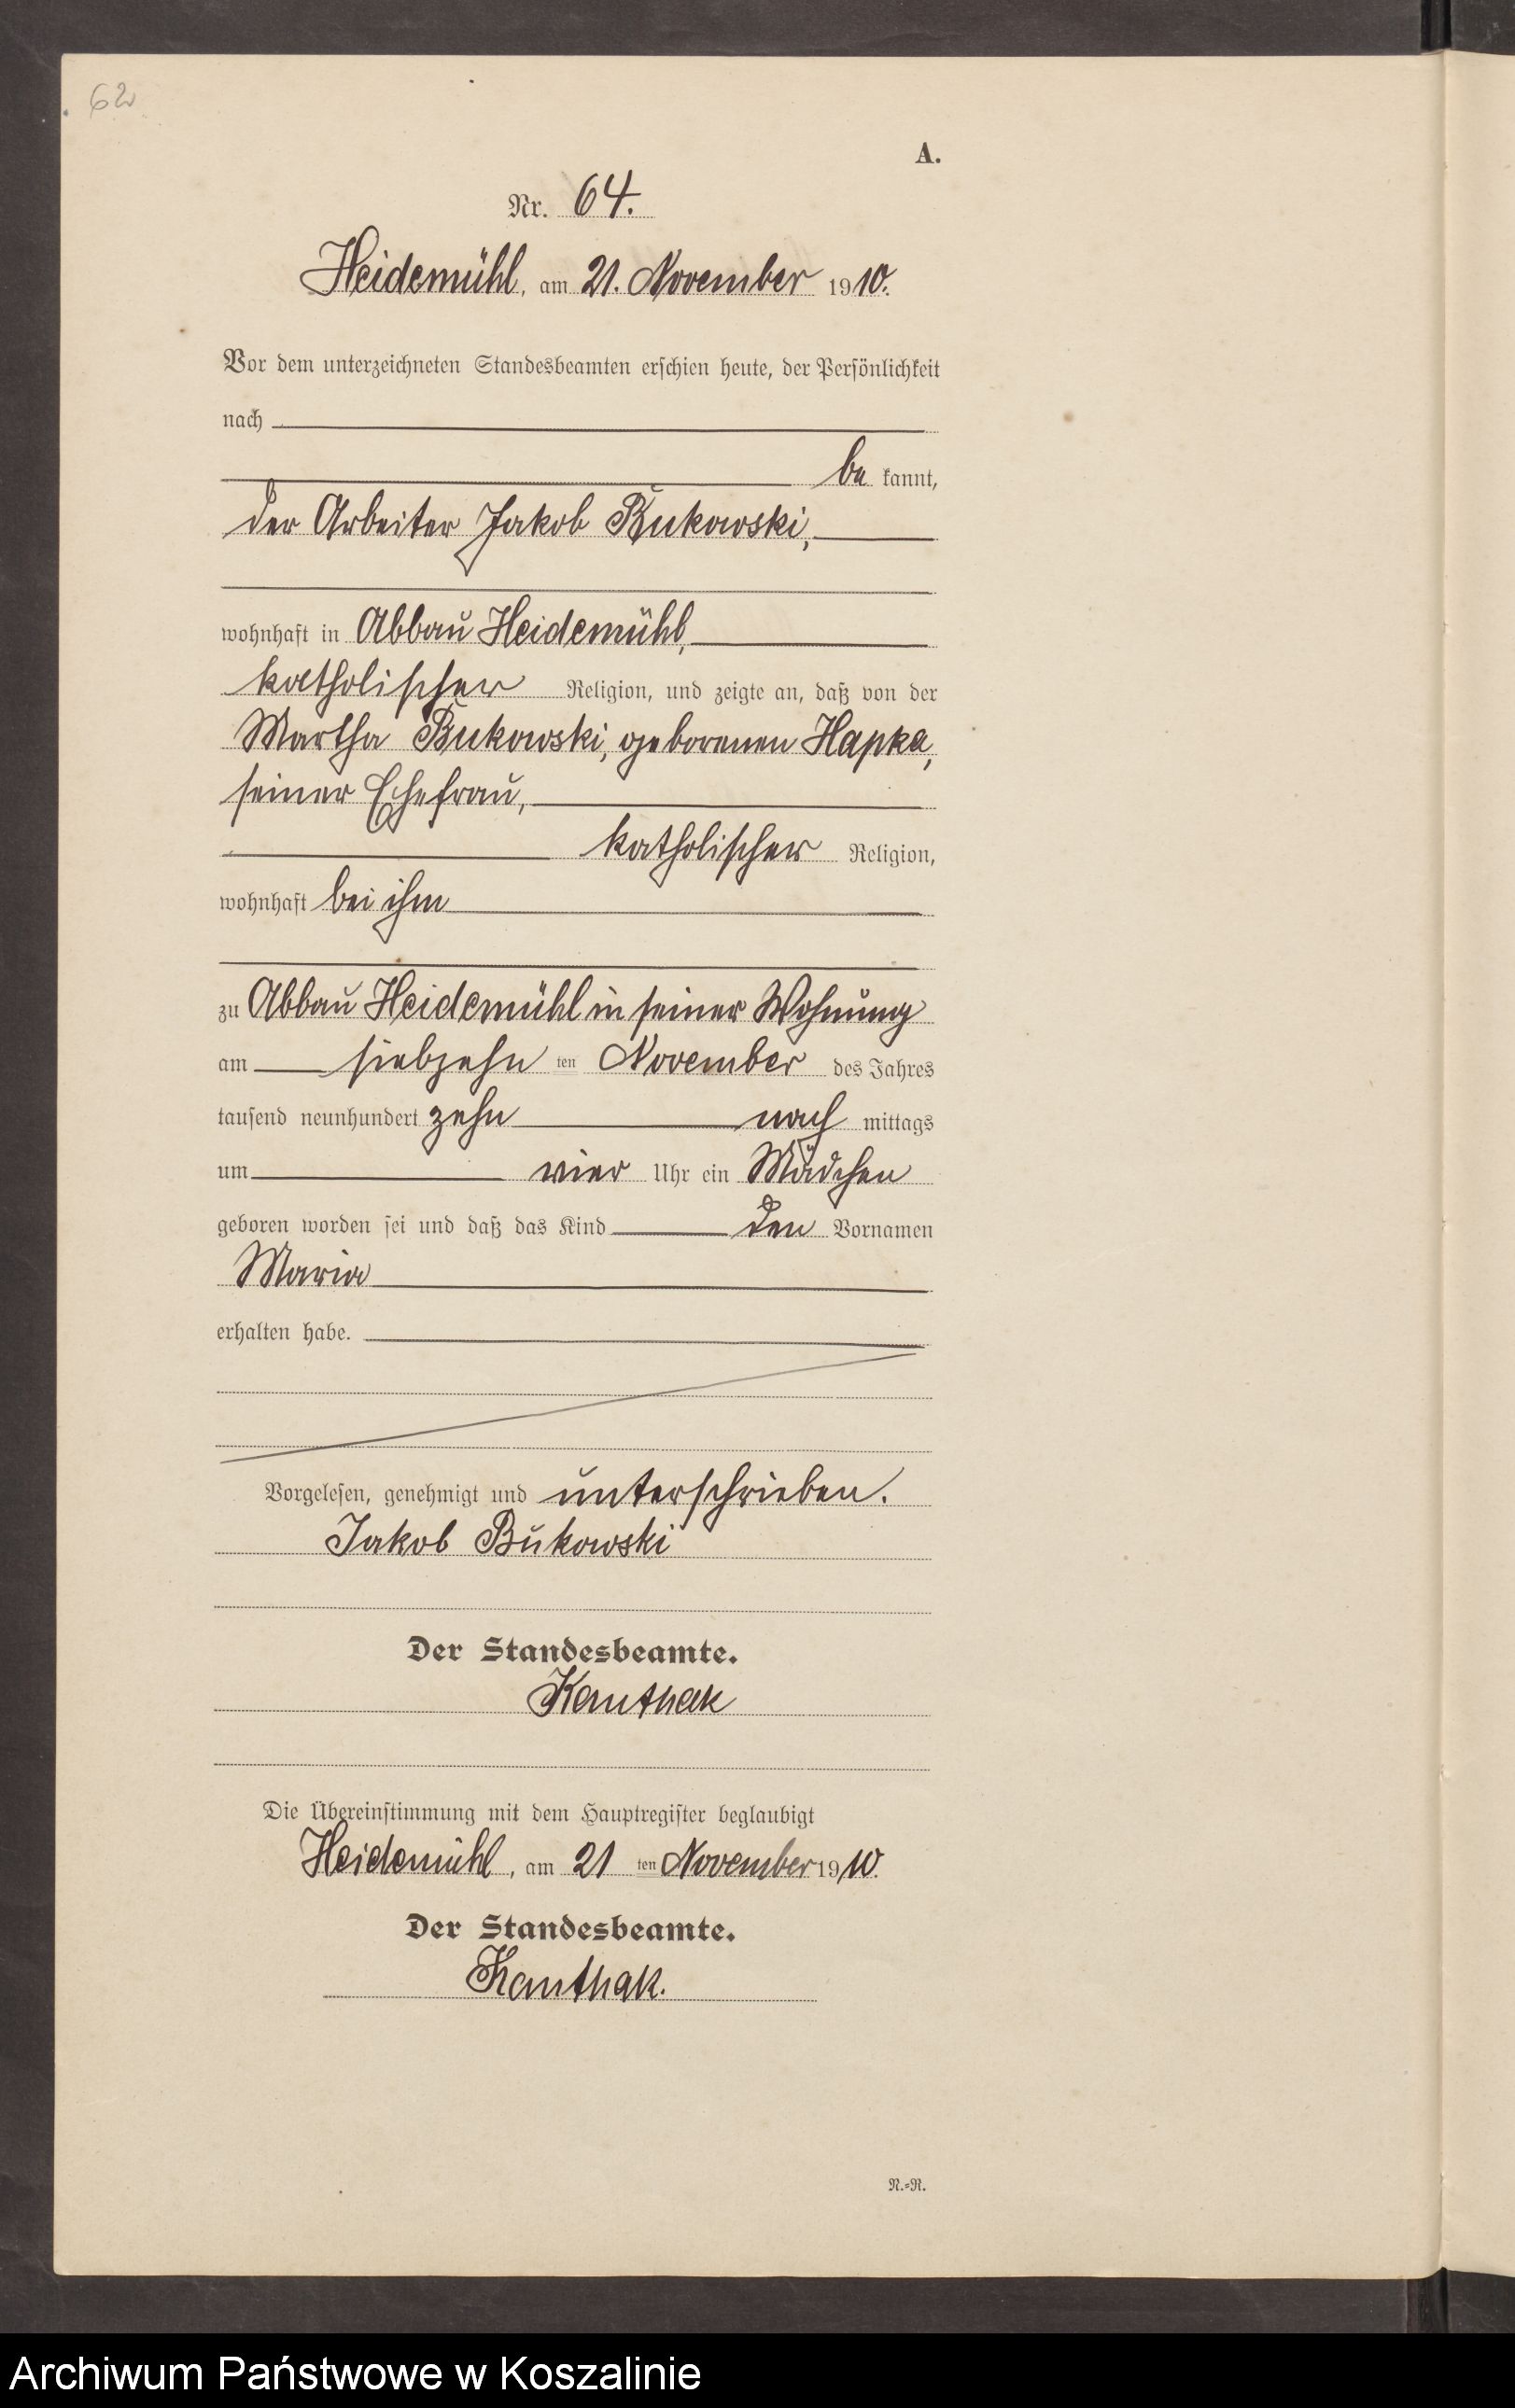 62
A.
Nr. 64.
Heidemühl, am 21. November 1910.
Vor dem unterzeichneten Standesbeamten erschien heute, der Persönlichkeit
nach
be kannt,
der Arbeiter Jakob Bukowski,
wohnhaft in Abbau Heidemühl,
katholischer Religion, und zeigte an, daß von der
Martha Bukowski, geborenen Hapka,
seiner Ehefrau,
katholischer Religion,
wohnhaft bei ihm
zu Abbau Heidemühl in seiner Wohnung
am siebzehn ten November des Jahres
tausend neunhundert zehn nach mittags
um vier Uhr ein Mädchen
geboren worden sei und daß das Kind den Vornamen
Maria
erhalten habe.
Vorgelesen, genehmigt und unterschrieben.
Jakob Bukowski
Der Standesbeamte.
Kanthak
Die Übereinstimmung mit dem Hauptregister beglaubigt
Heidemühl, am 21 ten November 1910.
Der Standesbeamte.
Kanthak.
N.=R.
Archiwum Państwowe w Koszalinie